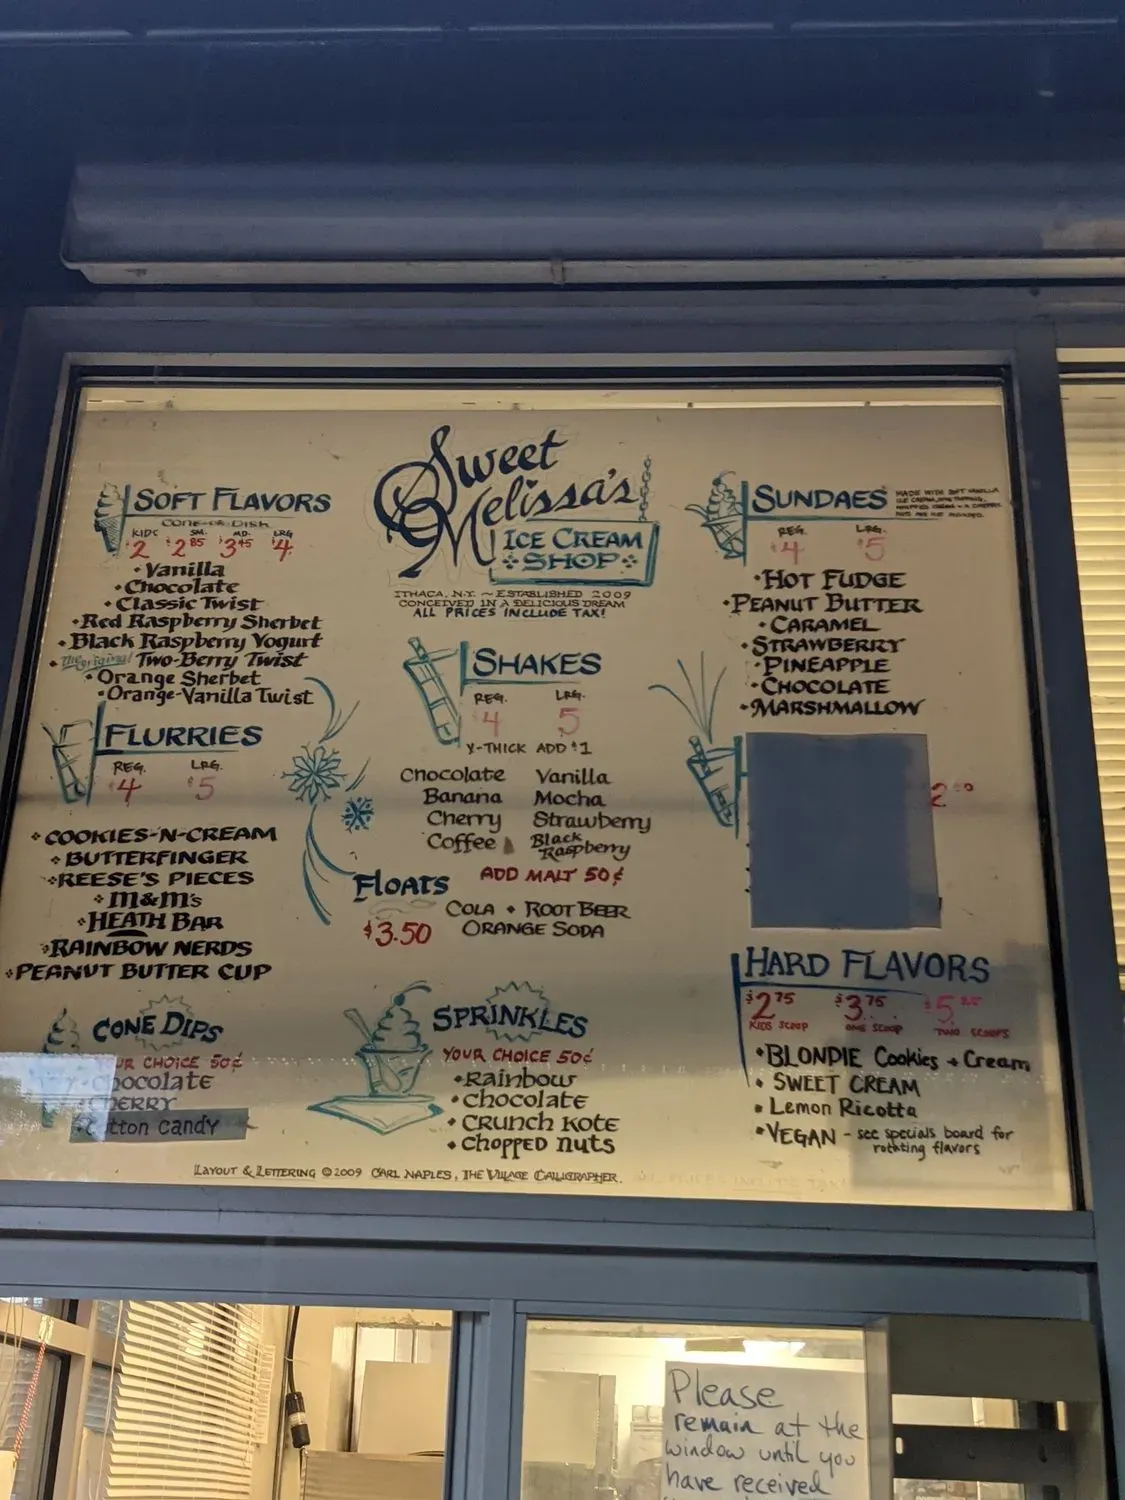 Sweet
Melissa's
ICE CREAM
SHOP
ITHACA, N.Y. ~ ESTABLISHED 2009
CONCEIVED IN A DELICIOUS DREAM
ALL PRICES INCLUDE TAX!
SOFT FLAVORS
CONE-OR-DISH
KIDS SM. MD. LRG
$2 $2.85 $3.45 $4
• Vanilla
• Chocolate
• Classic Twist
• Red Raspberry Sherbet
• Black Raspberry Yogurt
• The original Two-Berry Twist
• Orange Sherbet
• Orange-Vanilla Twist
FLURRIES
REG. LRG.
$4 $5
COOKIES-N-CREAM
BUTTERFINGER
REESE'S PIECES
M&M's
HEATH BAR
RAINBOW NERDS
PEANUT BUTTER CUP
CONE DIPS
YOUR CHOICE 50¢
Chocolate
CHERRY
Cotton Candy
SHAKES
REG. LRG.
4 5
X-THICK ADD $1
Chocolate Vanilla
Banana Mocha
Cherry Strawberry
Coffee Black Raspberry
ADD MALT 50¢
FLOATS
$3.50
COLA • ROOT BEER
ORANGE SODA
SPRINKLES
YOUR CHOICE 50¢
• Rainbow
• Chocolate
• CRUNCH KOTE
• CHOPPED NUTS
SUNDAES
MADE WITH SOFT VANILLA
ICE CREAM, ONE TOPPING,
WHIPPED CREAM + A CHERRY.
REG. LRG.
$4 $5
• HOT FUDGE
• PEANUT BUTTER
• CARAMEL
• STRAWBERRY
• PINEAPPLE
• CHOCOLATE
• MARSHMALLOW
HARD FLAVORS
$2.75 $3.75
KIDS SCOOP ONE SCOOP TWO SCOOPS
• BLONDIE Cookies + Cream
• SWEET CREAM
• Lemon Ricotta
• VEGAN - see specials board for
rotating flavors
LAYOUT & LETTERING © 2009 CARL NAPLES, THE VILLAGE CALLIGRAPHER.
Please
remain at the
window until you
have received